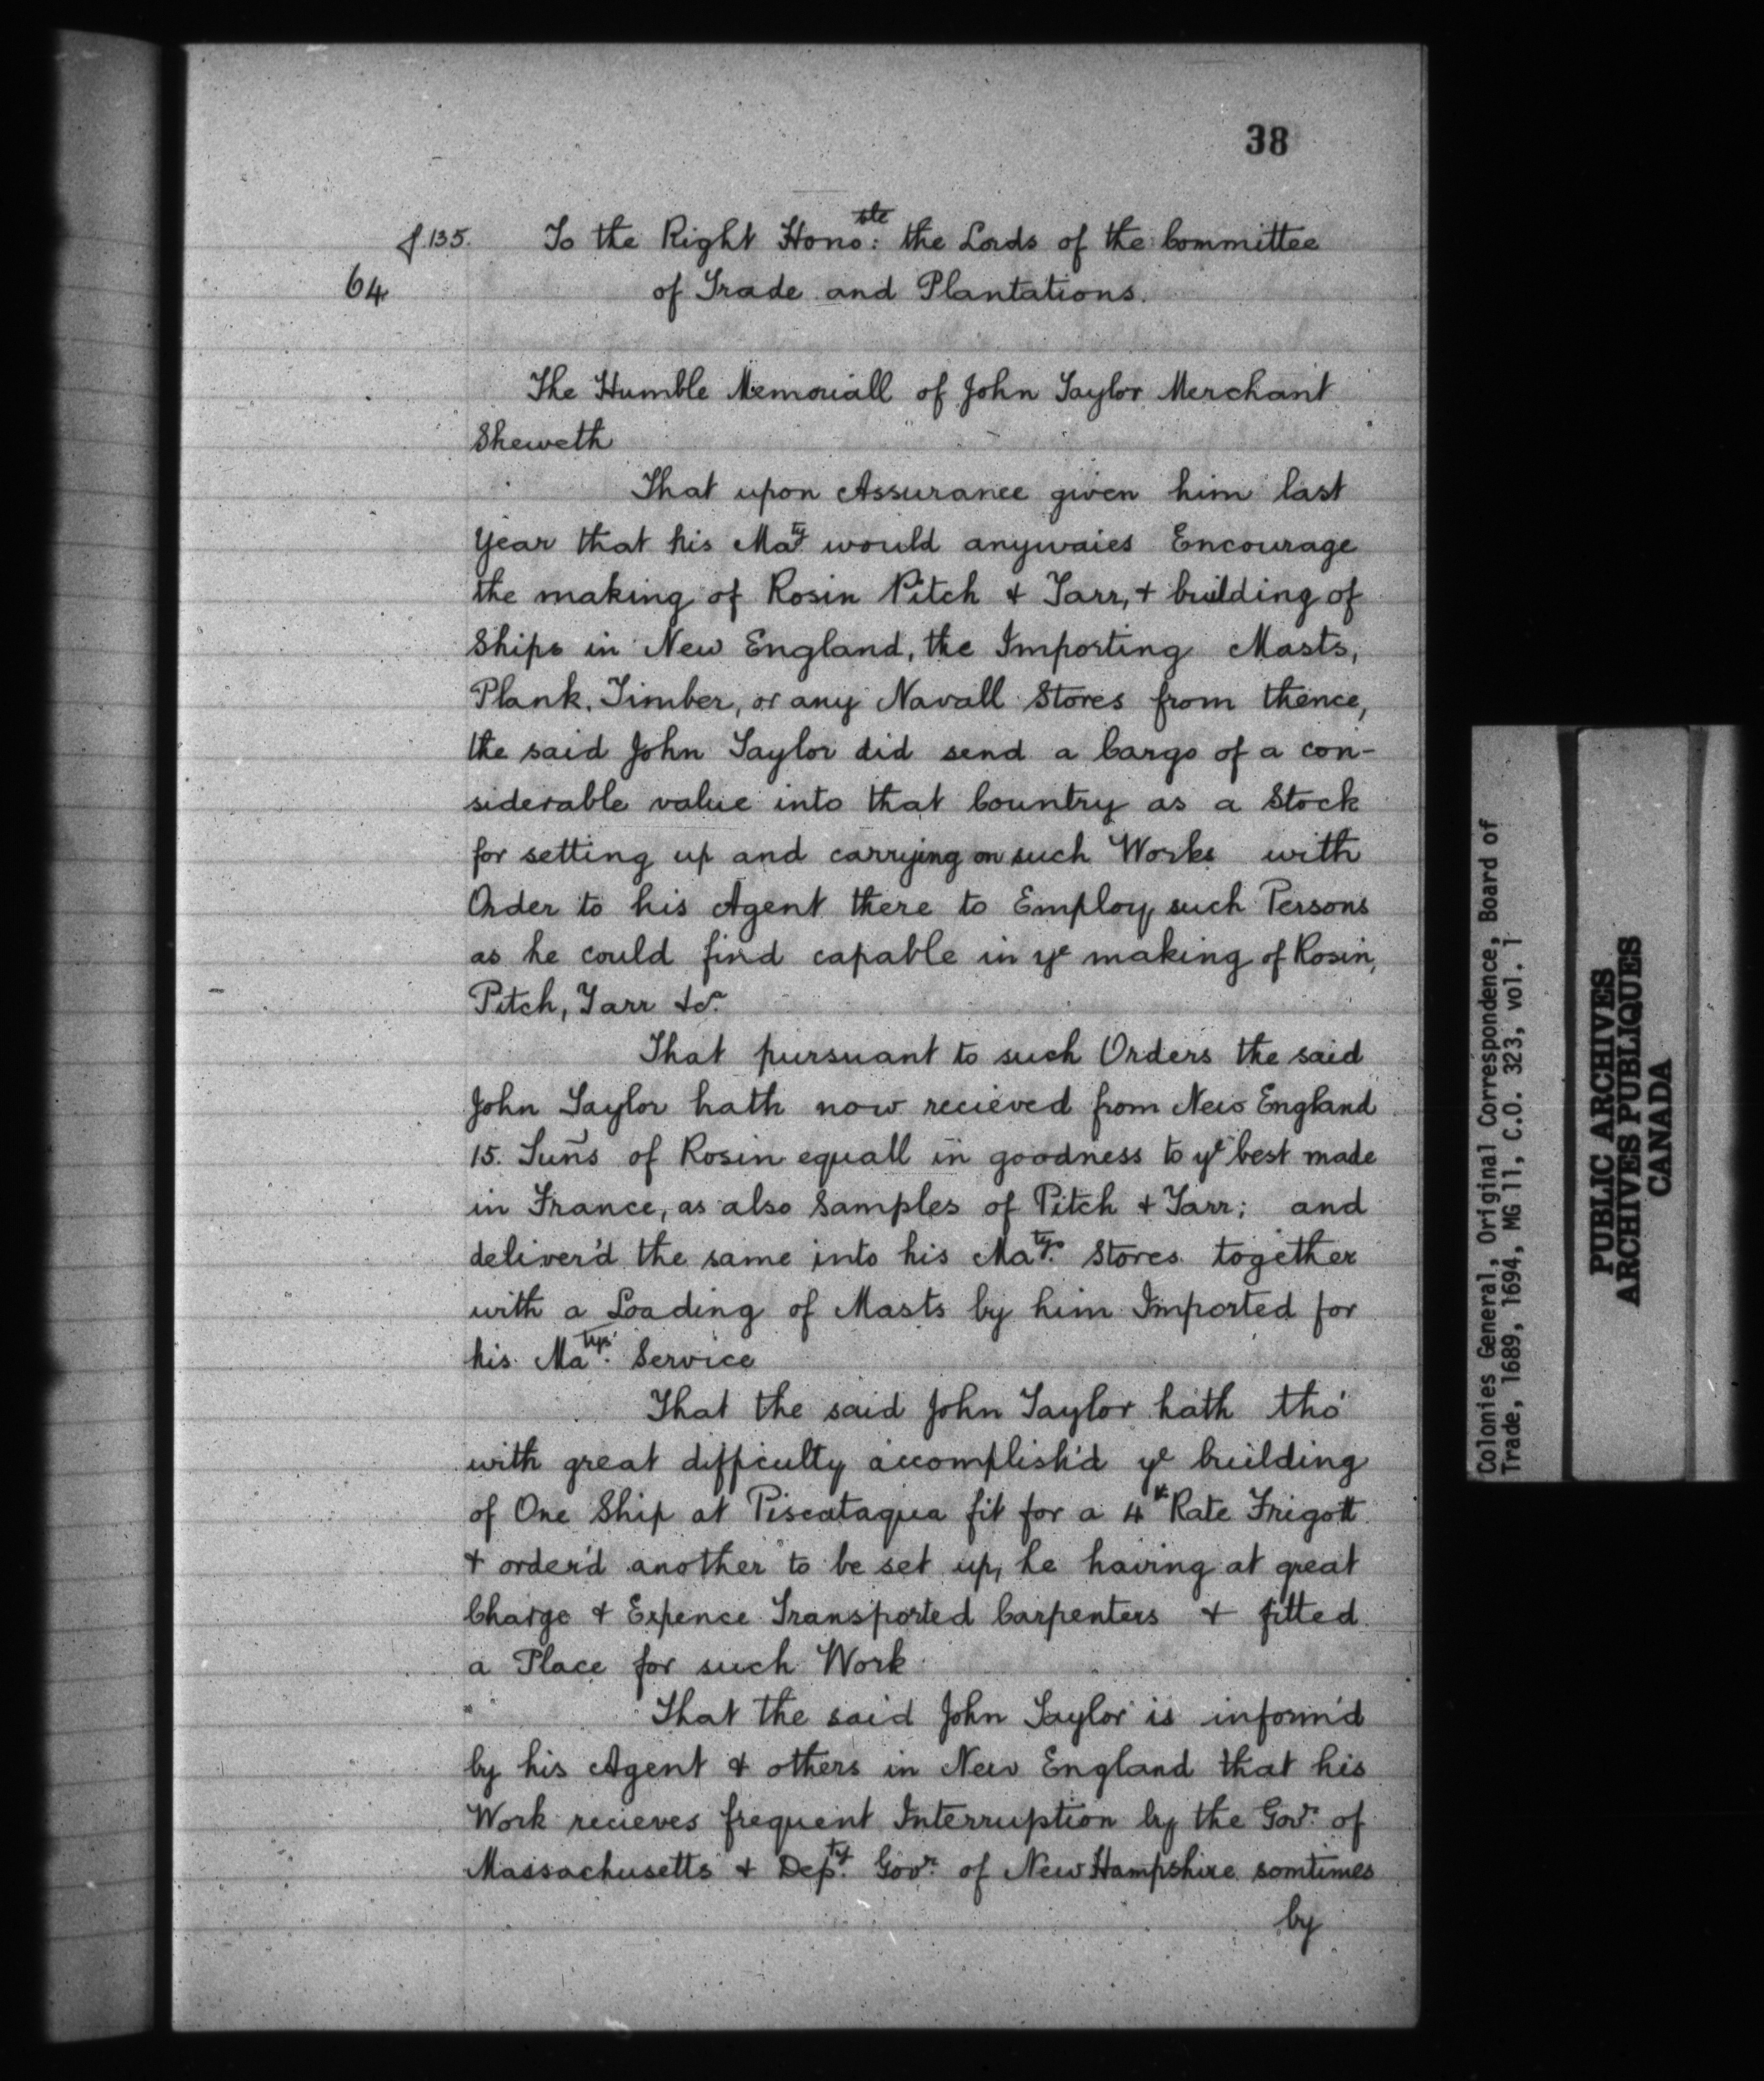 38
f. 135. To the Right Hono:ble the Lords of the Committee
64 of Trade and Plantations.
The Humble Memoriall of John Taylor Merchant
Sheweth
That upon Assurance given him last
Year that his Maty would anywaies Encourage
the making of Rosin Pitch & Tarr, & building of
Ships in New England, the Importing Masts,
Plank, Timber, or any Navall Stores from thence,
the said John Taylor did send a Cargo of a con-
siderable value into that Country as a Stock
for setting up and carrying on such Works with
Order to his Agent there to Employ such Persons
as he could find capable in ye making of Rosin,
Pitch, Tarr &c.
That pursuant to such Orders the said
John Taylor hath now recieved from New England
15. Tuñs of Rosin equall in goodness to ye best made
in France, as also Samples of Pitch & Tarr; and
deliver'd the same into his Matys. Stores together
with a Loading of Masts by him Imported for
his Matys. Service
That the said John Taylor hath tho'
with great difficulty accomplish'd ye building
of One Ship at Piscataqua fit for a 4th Rate Frigott
& order'd another to be set up, he having at great
Charge & Expence Transported Carpenters & fitted
a Place for such Work
That the said John Taylor is inform'd
by his Agent & others in New England that his
Work recieves frequent Interruption by the Govr. of
Massachusetts & Depty. Govr. of New Hampshire somtimes
by
Colonies General, Original Correspondence, Board of
Trade, 1689, 1694, MG 11, C.O. 323, vol. 1
PUBLIC ARCHIVES
ARCHIVES PUBLIQUES
CANADA